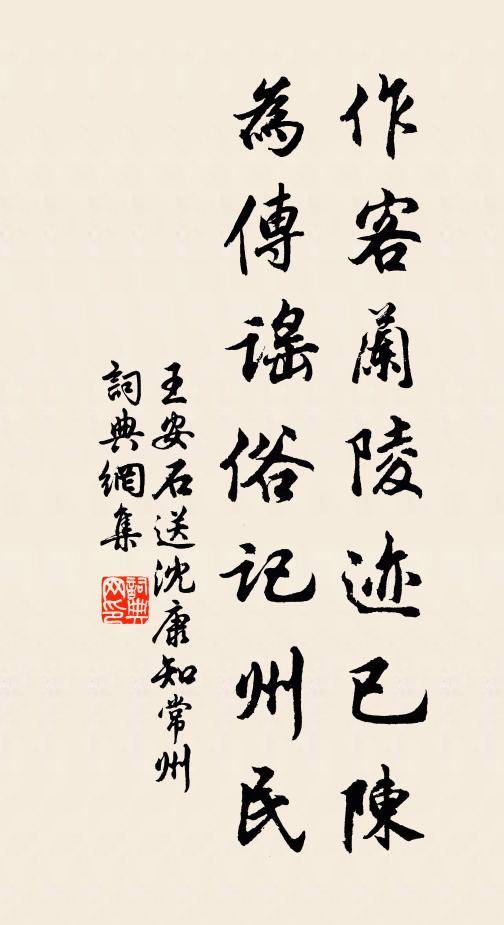 作客蘭陵迹已陳
為傳謡俗記州民
王安石送沈康知常州
詞典網集
詞典网印